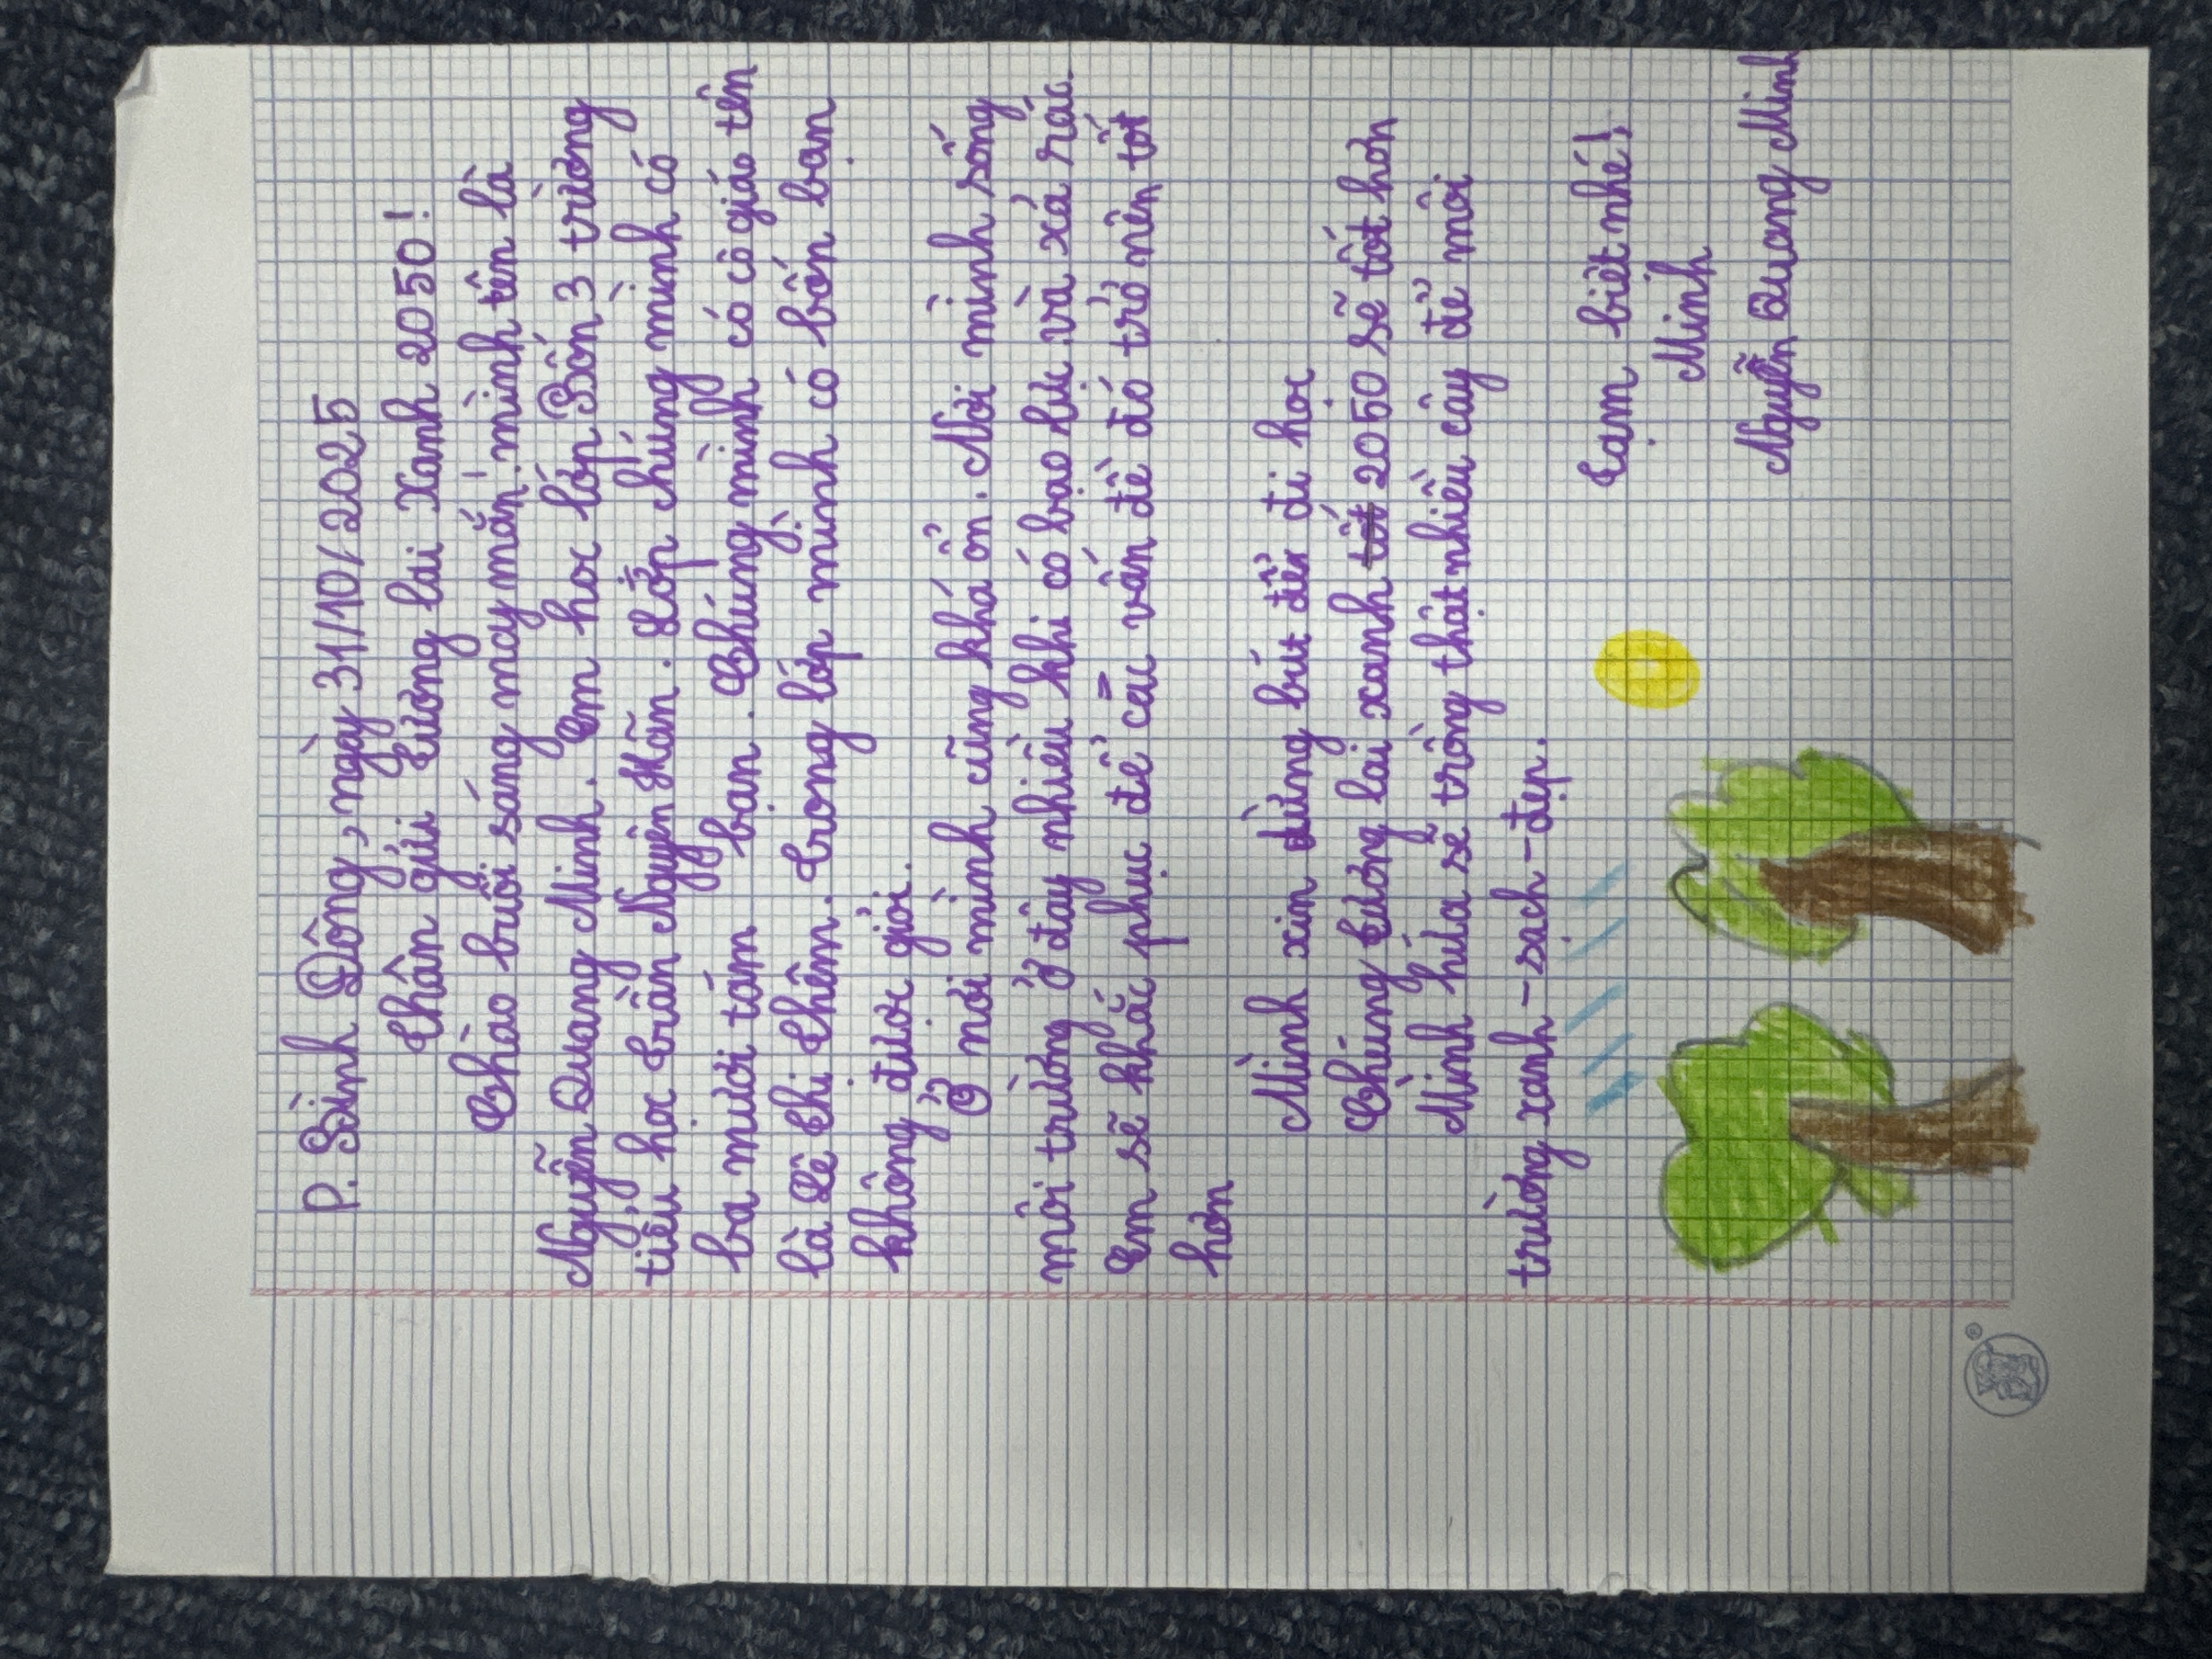 P. Bình Đông, ngày 31/10/2025
Thân gửi tương lai Xanh 2050!
Chào buổi sáng may mắn! mình tên là
Nguyễn Quang Minh. Em học lớp Bốn 3 trường
tiểu học Trần Nguyên Hãn. Lớp chúng mình có
ba mươi tám bạn. Chúng mình có cô giáo tên
là Lê Thi Thêm. Trong lớp mình có bốn bạn
không được giỏi.
Ở nơi mình cũng khá ổn. Nơi mình sống
môi trường ở đây nhiều khi có bạo lực và xả rác.
Em sẽ khắc phục để các vấn đề đó trở nên tốt
hơn
Mình xin dừng bút để đi học
Chúng tương lai xanh 2050 sẽ tốt hơn
Mình hứa sẽ trồng thật nhiều cây để môi
trường xanh-sạch-đẹp.
Tạm biệt nhé!
Minh
Nguyễn Quang Minh